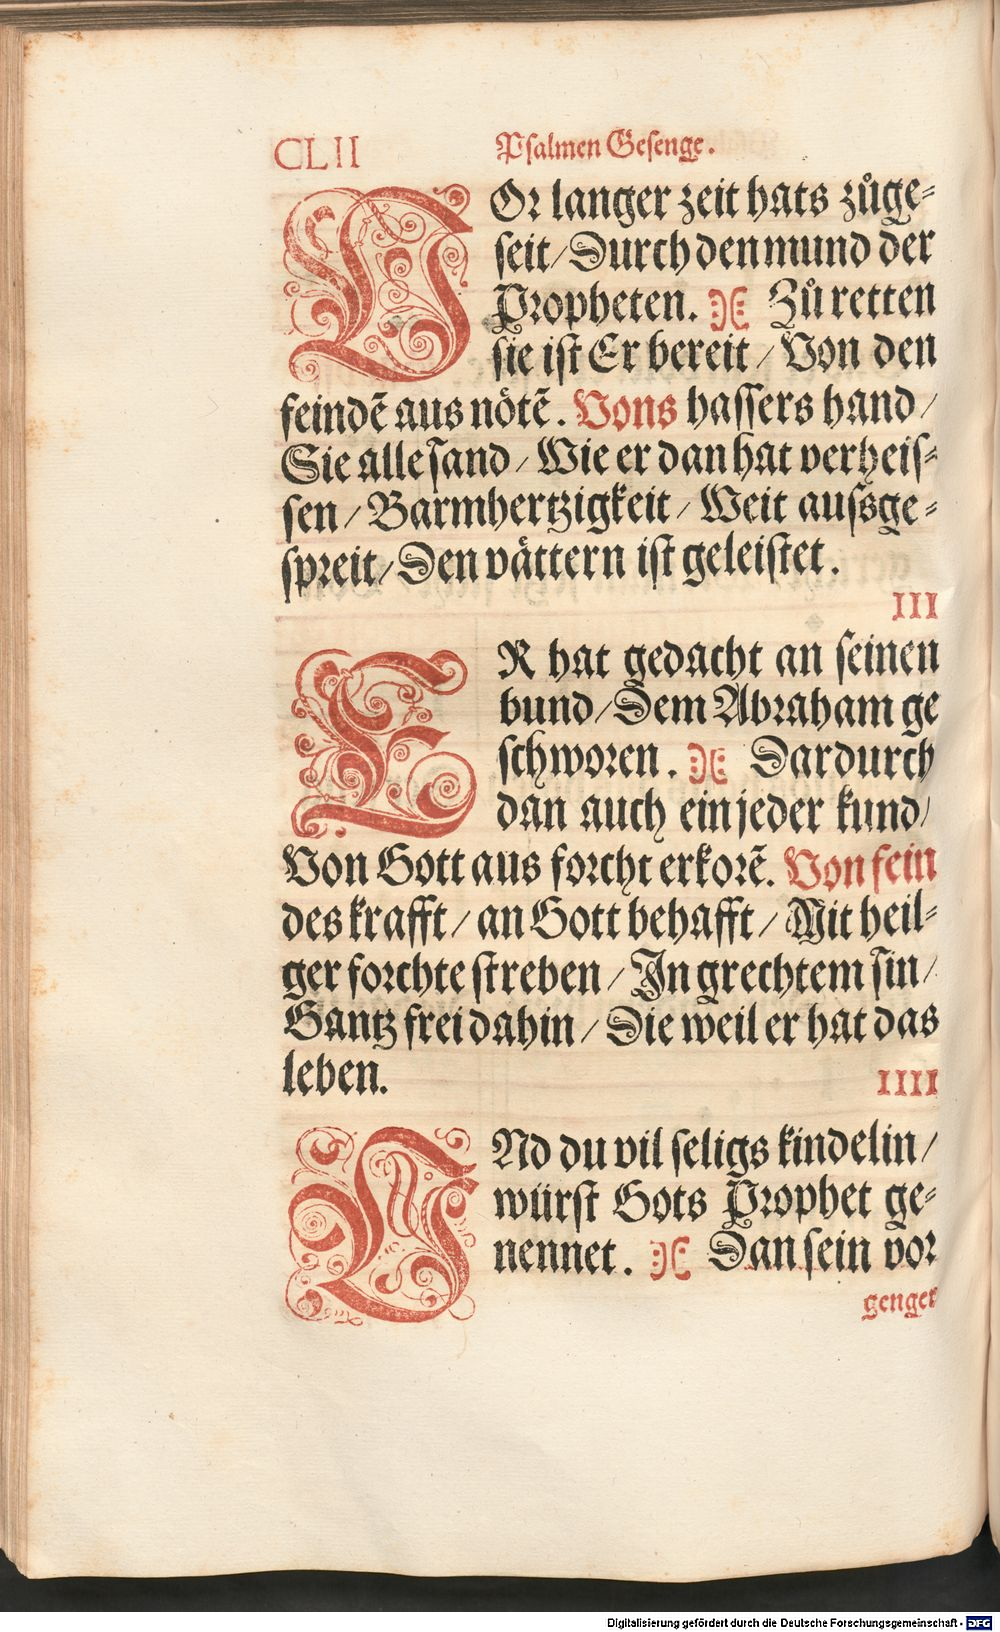 CLII Psalmen Gesenge.
VOr langer zeit hats zůge⸗
seit/Durch den mund der
Propheten. Zů retten
sie ist Er bereit/Von den
feindẽ aus nötẽ. Vons hassers hand/
Sie alle sand/Wie er dan hat verheis⸗
sen/Barmhertzigkeit/Weit aussge⸗
spreit/Den vättern ist geleistet.
III
ER hat gedacht an seinen
bund/Dem Abraham ge
schworen. Dardurch
dan auch ein jeder kund/
Von Gott aus forcht erkorẽ. Von fein
des krafft/an Gott behafft/Mit heil⸗
ger forchte streben/In grechtem sin/
Gantz frei dahin/Die weil er hat das
leben. IIII
VNd du vil seligs kindelin/
würst Gots Prophet ge⸗
nennet. Dan sein vor
genger
Digitalisierung gefördert durch die Deutsche Forschungsgemeinschaft - DFG